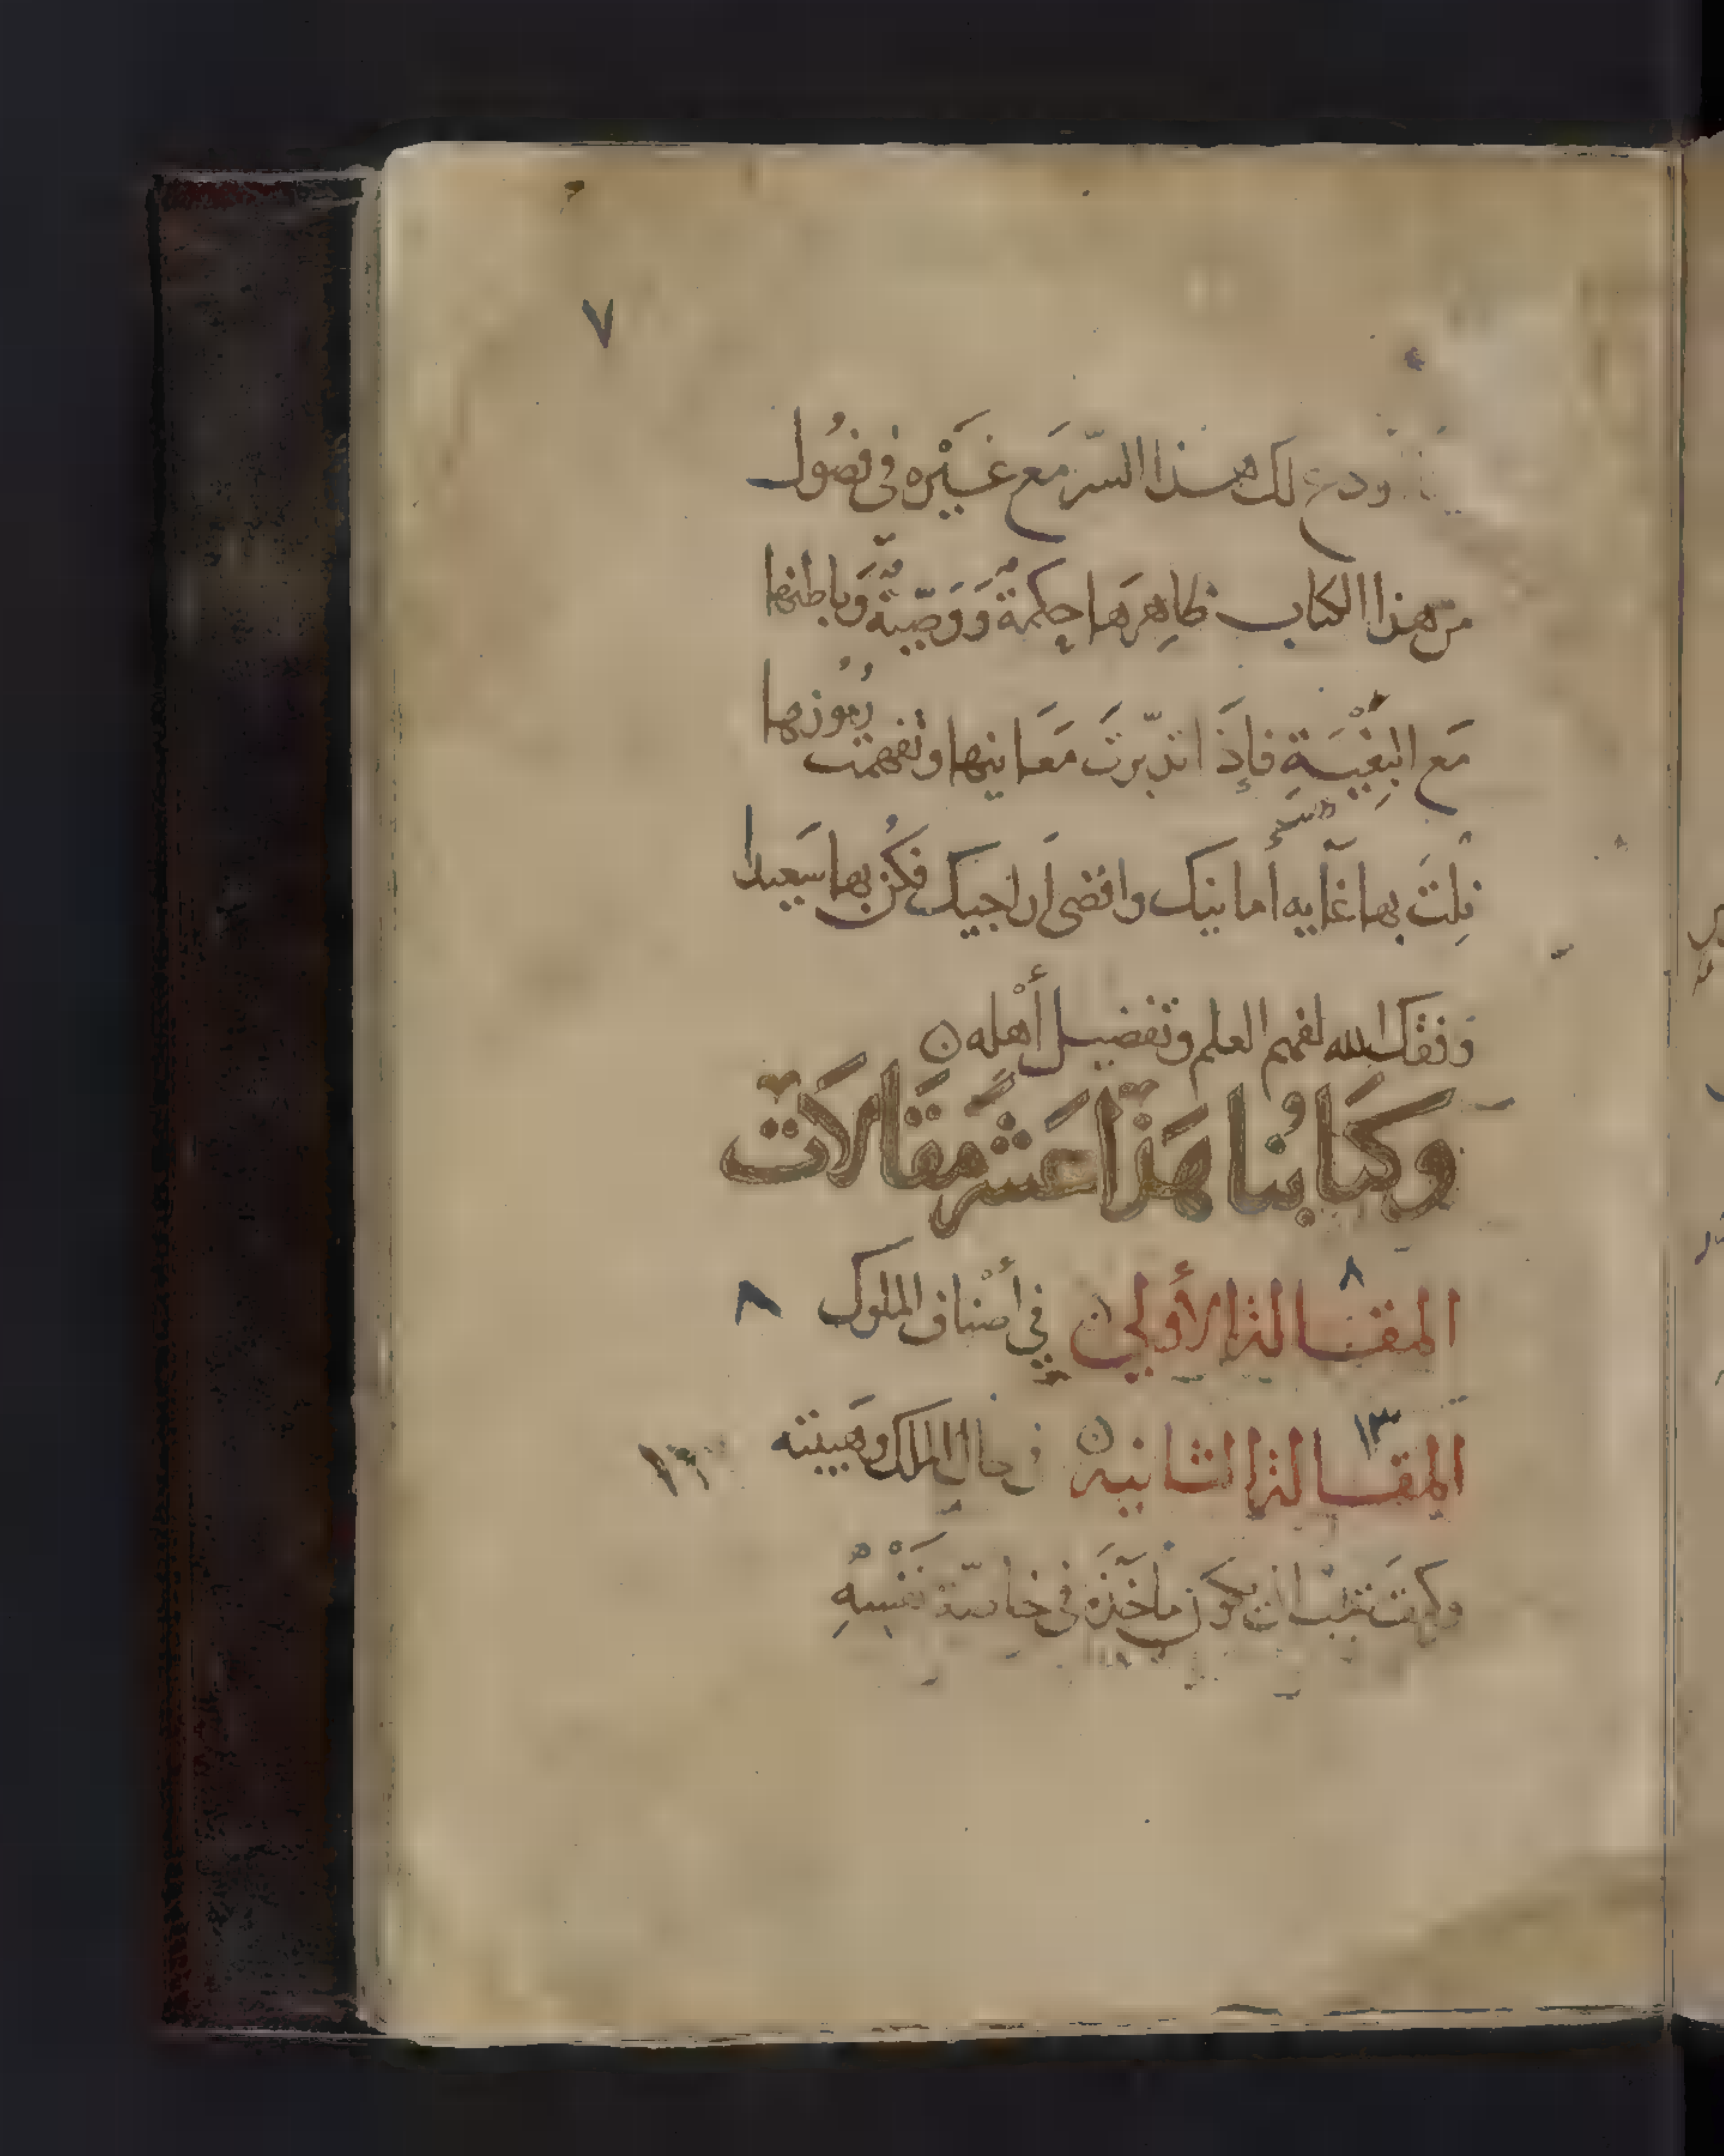 ٧
ودع لك هذا السّر مَع غَيْره فى فصُول
من هذا الكتاب ظاهِرَها حِكمةٌ وَوَصِّيةٌ وَباطنها
مَع البِغْيَةِ فإذَا تدبّرتَ مَعَانيها وتفهمت رُموزها
نِلتَ بها غَايه أمانيك واقضى اراجيك فكُن بها سَعيدا
وَفقك الله لفهم العلم وتفضيل أهْله ن
وكتَابُنا هَذا عَشر مقَالاَت
المقالة الأولى ن في أصْناف الملوك ٨
٨
المقالة الثانيه ن فى حال الملك وهَيبته ١٣
١٣
وكيفَ يَجب ان يكون مأخَذه فى خاصّة نَفْسِهِ